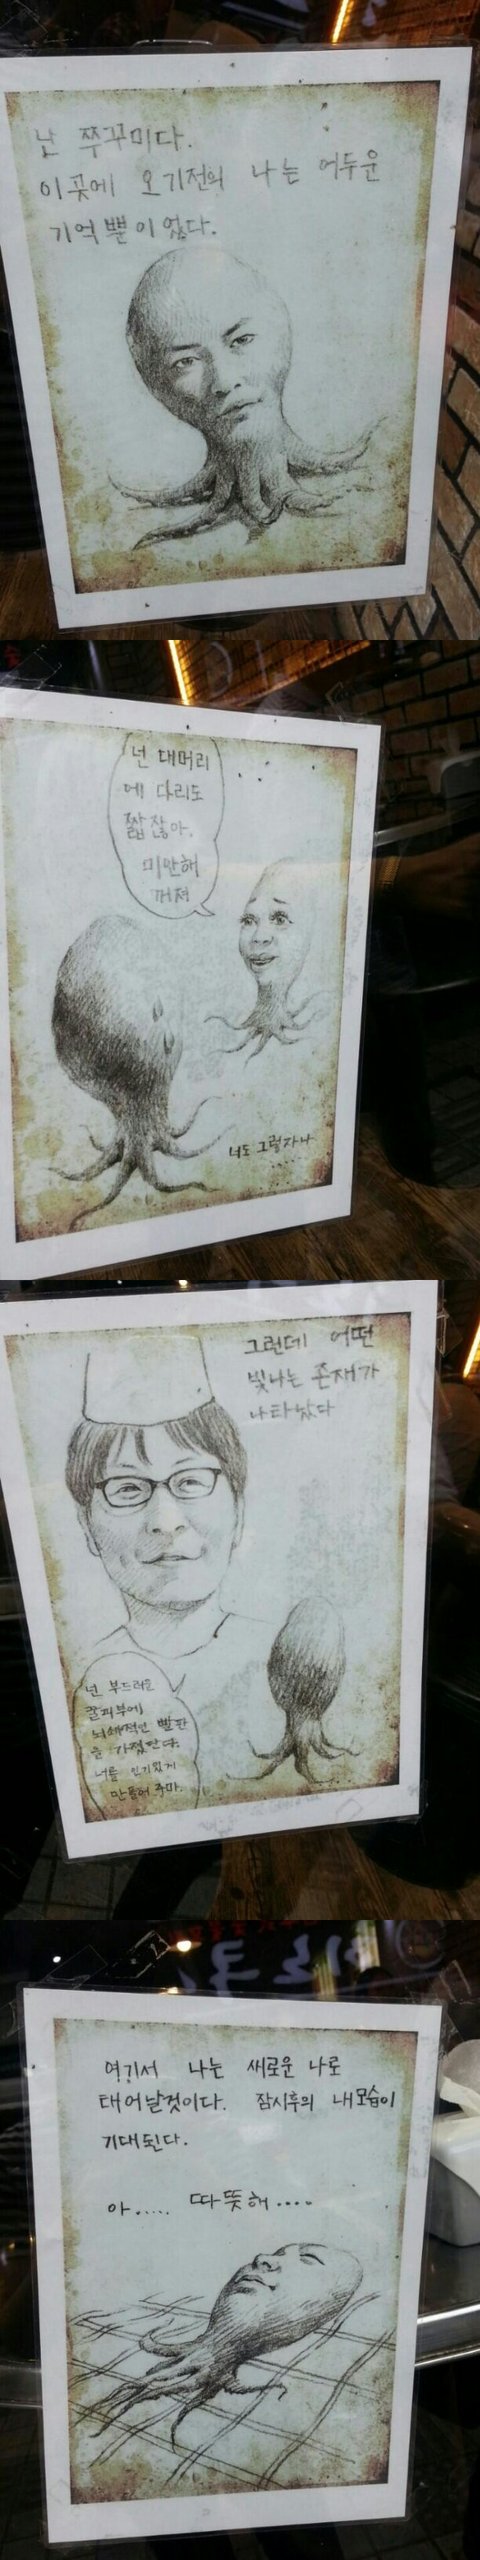 난 쭈꾸미다.
이곳에 오기전의 나는 어두운
기억뿐이었다.
넌 대머리
에 다리도
짧잖아.
미안해
꺼져
너도 그렇자나
......
그런데 어떤
빛나는 존재가
나타났다
넌 부드러운
꿀피부에
뇌쇄적인 빨판
을 가졌단다.
너를 인기있게
만들어 주마.
여기서 나는 새로운 나로
태어날것이다. 잠시후의 내모습이
기대된다.
아..... 따뜻해....